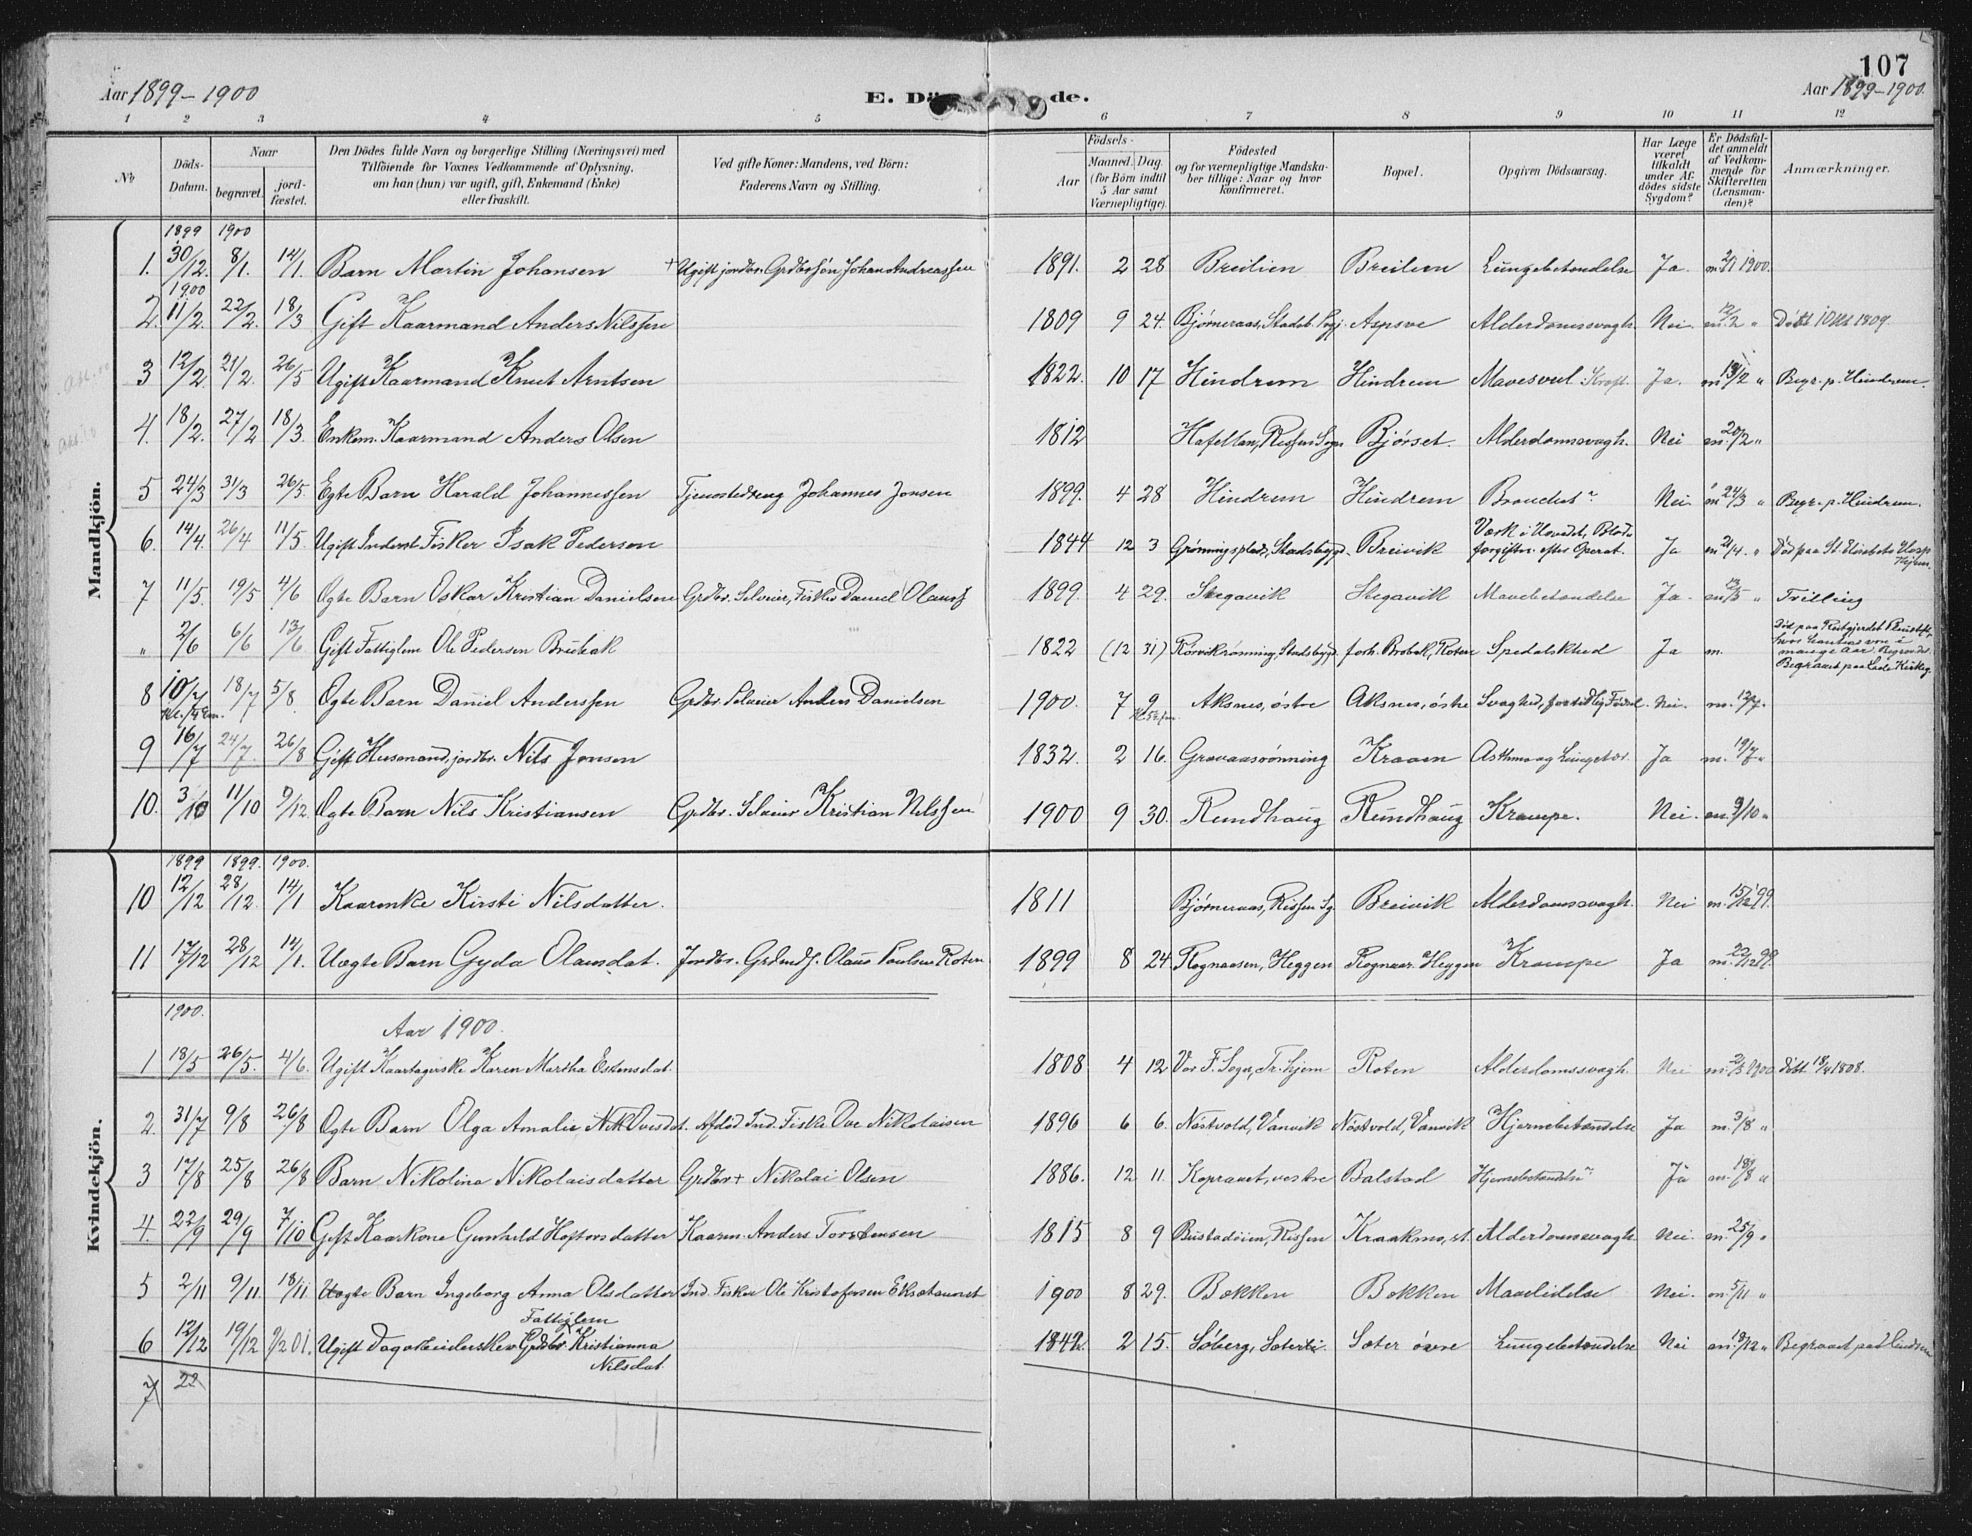 107
Aar 1899-1900 E. Dö de. Aar 1899-1900.
1 2 3 4 5 6 7 8 9 10 11 12
No
Döds-Datum.
Naar
begravet.
jord-fæstet.
Den Dödes fulde Navn og borgerlige Stilling (Næringsvei) med
Tilföiende for Voxnes Vedkommende af Oplysning,
om han (hun) var ugift, gift, Enkemand (Enke)
eller fraskilt.
Ved gifte Koner: Mandens, ved Börn:
Faderens Navn og Stilling.
Födsels-
Aar
Maaned. Dag.
(for Börn indtil
5 Aar samt
Værnepligtige).
Födested
og for værnepligtige Mandska-
ber tillige: Naar og hvor
konfirmeret.
Bopæl.
Opgiven Dödsaarsag.
Har Læge
været
tilkaldt
under Af-
dödes sidste
Sygdom?
Er Dödsfal-
det anmeldt
af Vedkom-
mende for
Skifteretten
(Lensman-
den)?
Anmærkninger.
Mandkjön.
1899 1900
1. 30/12. 8/1. 14/1. Barn Martin Johansen + Ugift jordbr. Grdbrsøn Johan Andreassen 1891. 2 28 Breilien Breilien Lungebetændelse Ja. m. 2/1 1900.
1900
2. 11/2. 22/2. 18/3 Gift Kaarmand Anders Nilssen 1809 9 24. Bjørneraas, Stadsb. Alderdomssvagh. Nei. m. 12/2 " Døbt 1 Okt 1809.
3 12/2. 21/2. 26/5 Ugift Kaarmand Knut Arntsen 1822. 10 17 Hindrem Hindrem Mavesvul Kræft. Ja. m. 13/2 " Begr. p. Hindrem.
4. 18/2. 27/2 18/3. Enkem. Kaarmand Anders Olsen 1812 Rissen Sogn Bjørset. Alderdomssvagh. Nei m. 20/2 "
5 24/3 31/3 26/5. Egte Barn Harald Johannessen Johannes Jonsen 1899. 4 28 Hindrem Hindrem Bronchit Nei. m 24/3 " Begr. p. Hindrem.
6. 14/4. 26/4 11/5. Ugift Inderst Fisker Isak Pedersen 1844 12 3 Grønningsplads, Stadsbygd. Breivik Værk i Hovedet, Blod-
forgiftn. efter Operat. Ja m 21/4. " Død paa St. Elisabeths Hosp
7 11/5. 19/5 4/6 Ægte Barn Oskar Kristian Danielsen Grdbr. Selveier, Fisker Daniel Olauss. 1899. 4 29. Skegavik Skegavik Mavebetændelse Ja. m " Trilling
" 2/6 6/6 13/6 Gift Fattiglem Ole Pedersen Brubak 1822 (12 31) Rørvikrønning, Stadsbygd. forh. Brobak, Roten Spedalskhed Ja m. mange Aar.
Begravet paa Lade Kirkeg.
8 10/7 18/7 5/8. Ægte Barn Daniel Anderssen Grdbr. Selveier Anders Danielsen 1900. 7 9 Aksnes, østre Aksnes, østre Svaghed, fortidlig Fødsel. Nei. m. 12/7.
9 16/7 24/7. 26/8 Gift Husmand, jordbr. Nils Jonsen 1832. 2 16. Gravaasrønning Kraaen Asthma og Lungetær. Ja m. 19/7 "
10. 3/10 11/10 9/12. Ægte Barn Nils Kristiansen Grdbr. Selveier Kristian Nilssen 1900 9 30. Rundhaug Rundhaug Krampe. Nei. m. 9/10 "
Kvindekjön.
1899 1899. 1900.
10 12/12 28/12. 14/1 Kaarenke Kirsti Nilsdatter. 1811 Bjørneraas, Rissen Sg. Breivik Alderdomssvagh. Nei m. 15/12 99.
11 17/12 28/12 14/1. Uægte Barn Gyda Olausdat. Jordbr. Olaus Paulsen Roten 1899 8 24 Rognaasen, Heggen Rognaas. Heggen Krampe Ja m. 22/12 99.
1900.
Aar 1900.
1 18/5 26/5. 4/6. Ugift Karen Martha Estensdat. 1808 4 12 Vor F. Sogn, Tr.hjem Roten Alderdomssvagh. Nei m. 1900 Døbt 18/4 1808.
2. 31/7 9/8 26/8 Ægte Barn Olga Amalie Ovesdat. Afdød Ind. Fisker Ove Nikolaisen 1896 6 6. Nøstvold, Vanvik Nøstvold, Vanvik Hjernebetændelse Ja m. 3/8 "
3 17/8 25/8 26/8 Barn Nikolina Nikolaisdatter Grdbr + Nikolai Olsen 1886. 12 11. Kopraaet, vestre Balstad Hjernebetændelse Ja m. 18/8 "
4. 22/9 29/9 7/10 Gift Kaarkone Gunhild Haftorsdatter Kaarm. Anders Torstensen 1815 8 9 Bustadøien, Rissen Kraakmo, st. Alderdomssvagh. Nei. m. 25/9 "
5 2/11 9/11 18/11 Uægte Barn Ingeborg Anna Olsdatter Ind. Fisker Ole Kristofersen 1900 8 29. Bakken Bakken Mavelidelse Nei. m. 5/11 "
Fattiglem
6 12/12 19/12 9/2 01. Ugift Kristianna
Nilsdat. 1842. 2 15. Søberg, Sæter øvre Lungebetændelse Nei m. 18/12 " Begravet paa
7 22